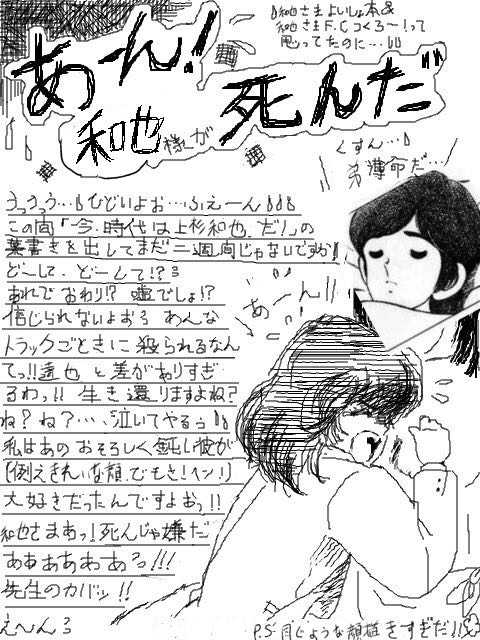 あーん!
和也様が
死んだ
和也さまよいしょ本&
和也さまF.Cつくろー!って
思ってたのに…
くすん…
弟薄命だ…
うっうっう…ひどいよお…ふえーん
この間「今、時代は上杉和也だ!」の
葉書きを出してまだ二週間じゃないですか!
どーして、どーして!?
あれでおわり!?嘘でしょ!?
信じられないよおっあんな
トラックごときに殺られるなん
てっ!!達也と差がありすぎ
るわっ!!生き還りますよね?
ね?ね?…、泣いてやるぅ
私はあのおそろしく鈍い彼が
(例えきれいな顔でもさ!ヘン!)
大好きだったんですよおっ!!
和也さまあっ!死んじゃ嫌だ
ああああああっ!!!
先生のカバッ!!
え〜ん
あーん!!
P.S.同じような顔描きすぎだ!!